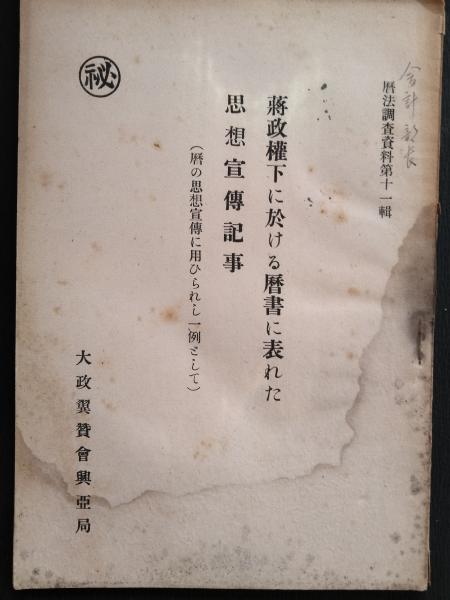 會計部長
暦法調査資料第十一輯
蔣政權下に於ける暦書に表れた
思想宣傳記事
(暦の思想宣傳に用ひられし一例として)
大政翼贊會興亞局
㊙